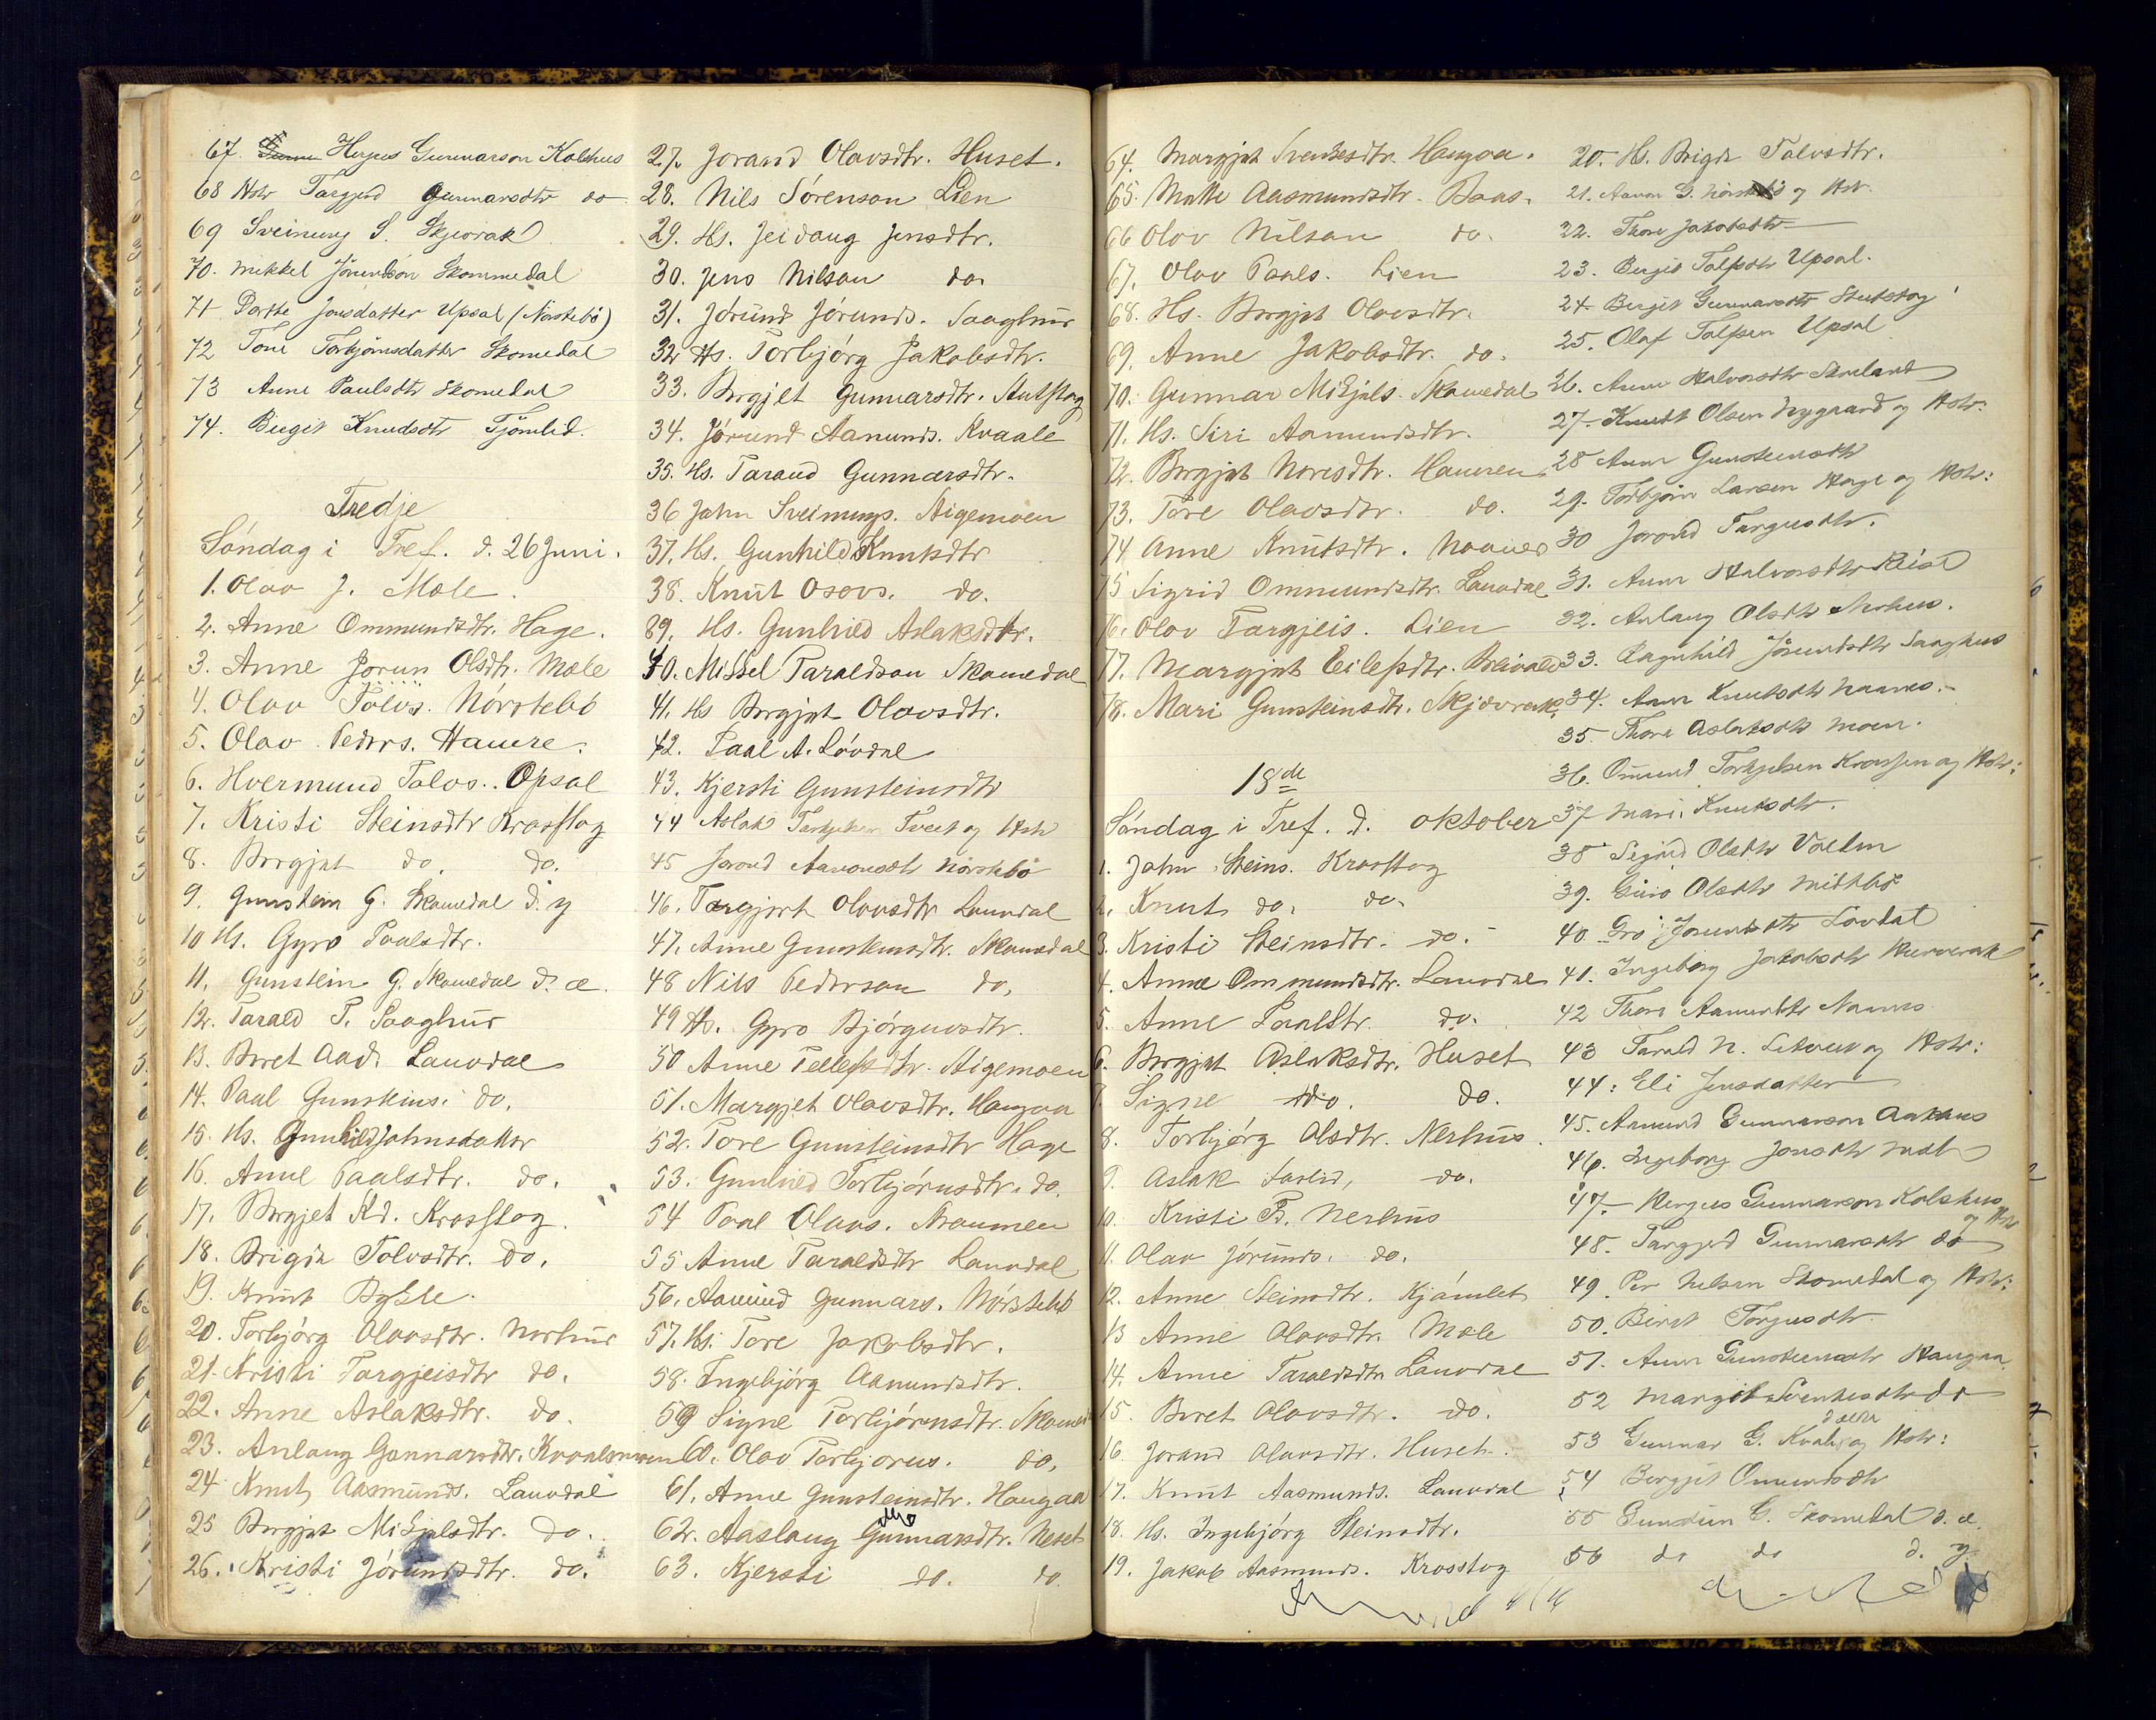 67. Hergus Gunnarson Kolshus
68 Hstr Targjerd Gunnarsdtr do
69 Sveinung S. Skjevrak
70. Mikkel Jörundson Skommedal
71 Dorthe Jonsdatter Upsal (Nörstebö)
72 Tone Torbjörnsdatter Skomedal
73 Anne Paulsdtr Skomedal
74. Birgit Knudsdtr Tjömlid.
Tredje
Søndag i Tref. d. 26 Juni.
1. Olav J. Mole.
2. Anne Ommundsdtr. Hage.
3. Anne Jorun Olsdtr. Mole
4. Olav Tolvs. Nørstebø
5. Olav Peders. Haure.
6. Hvermund Talvs. Opsal
7. Kristi Steinsdtr Krosstog
8. Borgjet do. do.
9. Gunstein G. Skomedal d. y
10 Hs. Gyro Paalsdtr.
11. Gunstein G. Skomedal d. æ.
12. Tarald T. Saaghus
13. Boret Aad. Lauvdal
14. Paal Gunsteins. do.
15. Hs. Gunhild Johnsdatter
16. Anne Paalsdtr. do.
17. Borgjet Kd. Krosstog.
18. Brigda Tolvsdtr. do.
19. Knut Bykle.
20. Torbjørg Olavsdtr. Nerhus
21. Kristi Torgjeisdtr do.
22. Anne Aslaksdtr. do.
23. Anlaug Gunnarsdtr. Kvaalemoen
24 Knut Aasmunds. Lauvdal
25 Borgjet Mikjalsdtr. do.
26. Kristi Jørundsdtr. do.
27. Jorand Olavsdtr. Huset.
28. Nils Sørenson Lien
29. Hs. Jeidaug Jensdtr.
30. Jens Nilson do.
31. Jørund Jørunds. Saaghus
32 Hs. Torbjørg Jakobsdtr.
33. Borgjet Gunnarsdtr. Stutstog
34. Jørund Aanunds. Kvaale
35. Hs. Tarand Gunnarsdtr.
36 John Sveinungs. Stigemoen
37. Hs. Gunhild Knutsdtr
38. Knut Osovs. do.
39. Hs. Gunhild Aslaksdtr.
40. Mikkel Taraldson Skomedal
41. Hs Borgjet Olavsdtr.
42. Paal A. Løvdal
43. Kjersti Gunsteinsdtr
44 Aslak Torkjelsen Tveit og Hstr
45 Jorond Aavonsdtr Nörstebö
46. Targjert Olavsdtr Lauvdal
47. Anne Gunsteinsdtr. Skomedal
48 Nils Pederson do.
49 Hs. Gyro Bjørguvsdtr.
50 Anne Tellefsdtr. Stigemoen
51. Margjet Olavsdtr. Haugaa
52. Tore Gunsteinsdtr Hage
53. Gunhild Torbjørnsdtr. do.
54 Paal Olavs. Straumen
55 Anne Taraldsdtr Lauvdal
56. Aamund Gunnars. Nørstebø
57. Hs. Tore Jakobsdtr.
58. Ingebjørg Aanundsdtr.
59 Signe Torbjørnsdtr. Skomedal
60. Olav Torbjørns. do.
61. Anne Gunsteinsdtr. Haugaa
62. Aaslaug Gunnarsdtr. Neset
63. Kjersti do. do.
64. Margjet Svenkesdtr. Haugaa.
65. Matte Aasmundsdtr. Baas.
66 Olav Nilson do.
67. Olav Paals. Lien
68. Hs. Borgjet Olavsdtr.
69. Anne Jakobsdtr. do.
70. Gunnar Mikjals. Skomedal
71. Hs. Siri Aamundsdtr.
72. Borgjet Noresdtr. Hauren
73. Tore Olavsdtr. do.
74 Anne Knutsdtr. Naanes
75 Sigrid Ommundsdtr. Lauvdal
76. Olav Targjeis. Lien
77. Margjet Eilefsdtr.
78. Mari Gunsteinsdtr. Skjevrak.
18de
Søndag i Tref. d. oktober
1. John Steins. Krosstog
2. Knut do. do.
3. Kristi Steinsdtr. do.
4. Anne Ommundsdtr. Lauvdal
5. Anne Paalsdtr. do.
6. Borgjet Aslaksdtr. Huset
7. Signe do. do.
8. Torbjørg Olsdtr. Nerhus.
9. Aslak Savlid, do.
10. Kristi B. Nerhus
11. Olav Jørunds. do.
12. Anne Steinsdtr. Kjømlet
13 Anne Olavsdtr. Mole
14. Anne Taraldsdtr Lauvdal
15. Boret Olavsdtr. do.
16. Jorand Olavsdtr. Huset.
17. Knut Aasmunds. Lauvdal
18. Hs. Ingebjørg Steinsdtr.
19. Jakob Aasmunds. Krosstog
20. Hs. Brigda Talvsdtr.
21. Aavon G. Nörstebö og Hstr.
22. Thore Jakobsdtr
23. Birgit Talfsdtr Upsal.
24. Birgit Gunnarsdtr Stutstog
25. Olaf Talfsen Upsal
26. Anne Halvorsdtr
27. Knudt Olsen Nygaard og Hstr.
28 Anne Gunsteinsdtr
29. Torbjörn Larsen Hage og Hstr:
30 Jorond Targusdtr.
31. Anne Halvorsdtr Rist
32. Anlaug Olsdtr Nerhus.
33. Ragnhild Jörundsdtr Saaghus
34. Anne Knutsdtr Naanes.
35. Thore Aslaksdtr Moen.
36. Omund Torkjelsen og Hstr:
37 Mari Knutsdtr.
38 Sigrid Olsdtr
39. Guro Olsdtr Midtbö
40. Gro Jorundsdtr Lovdal
41. Ingeborg Jakobsdtr
42 Thore Aanundsdtr Naanes
43 Tarald N. og Hstr:
44: Eli Jensdatter
45. Aanund Gunnarson Aakhus
46. Ingeborg Jonsdtr
47. Hergus Gunnarson Kolshus og Hstr
48. Targjerd Gunnarsdtr do
49. Per Nelsen Skomedal og Hstr:
50. Birit Torgusdtr
51. Anne Gunsteinsdtr Haugaa
52 Margit Svenkesdtr do
53 Gunnar G. Kvale d. ældre og Hstr:
54 Borgjit Omundsdtr
55 Gunstein G. Skomedal d. æ.
56 do do d. y.